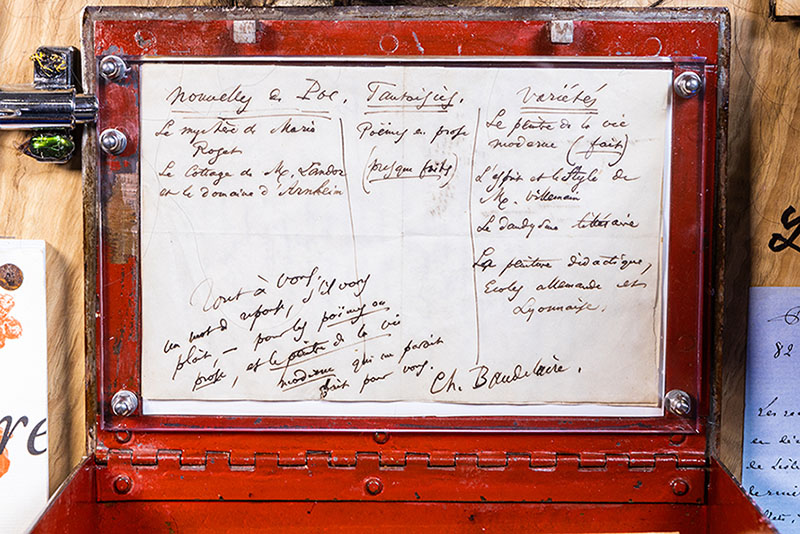 Nouvelles de Poe.
Le mystère de Marie
Roget
Le Cottage de M. Landor
et le domaine d'Arnheim
Fantaisies.
Poëmes en prose
(presque faits)
Variétés
Le peintre de la vie
moderne (fait)
L'esprit et le style de
M. Villemain
Le dandysme littéraire
La peinture didactique,
Ecoles allemande et
Lyonnaise.
Tout à vous.
un mot de réponse, s'il vous
plaît, — pour les poëmes en
prose, et le peintre de la vie
moderne qui me paraît
fait pour vous.
Ch. Baudelaire.
re
82
Les
en
de